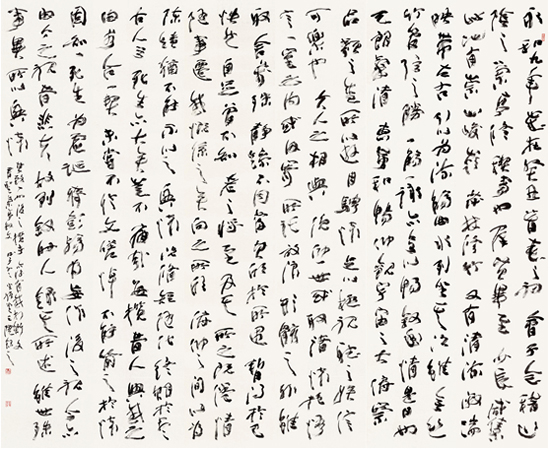 永和九年歲在癸丑暮春之初會于會稽山
陰之蘭亭修禊事也群賢畢至少長咸集
此地有崇山峻嶺茂林修竹又有清流激湍
映帶左右引以為流觴曲水列坐其次雖無絲
竹管弦之盛一觴一詠亦足以暢敘幽情是日也
天朗氣清惠風和暢仰觀宇宙之大俯察
品類之盛所以遊目騁懷足以極視聽之娛信
可樂也夫人之相與俯仰一世或取諸懷抱悟
言一室之內或因寄所託放浪形骸之外雖
取舍萬殊靜躁不同當其欣於所遇暫得於己
快然自足曾不知老之將至及其所之既倦情
隨事遷感慨係之矣向之所欣俯仰之間以為
陳跡猶不能不以之興懷況修短隨化終期於盡
古人云死生亦大矣豈不痛哉每攬昔人興感之
由若合一契未嘗不臨文嗟悼不能喻之於懷
固知一死生為虛誕齊彭殤為妄作後之視今亦
由今之視昔悲夫故列敘時人錄其所述雖世殊
事異所以興懷
其致一也後之攬者亦將有感於斯文